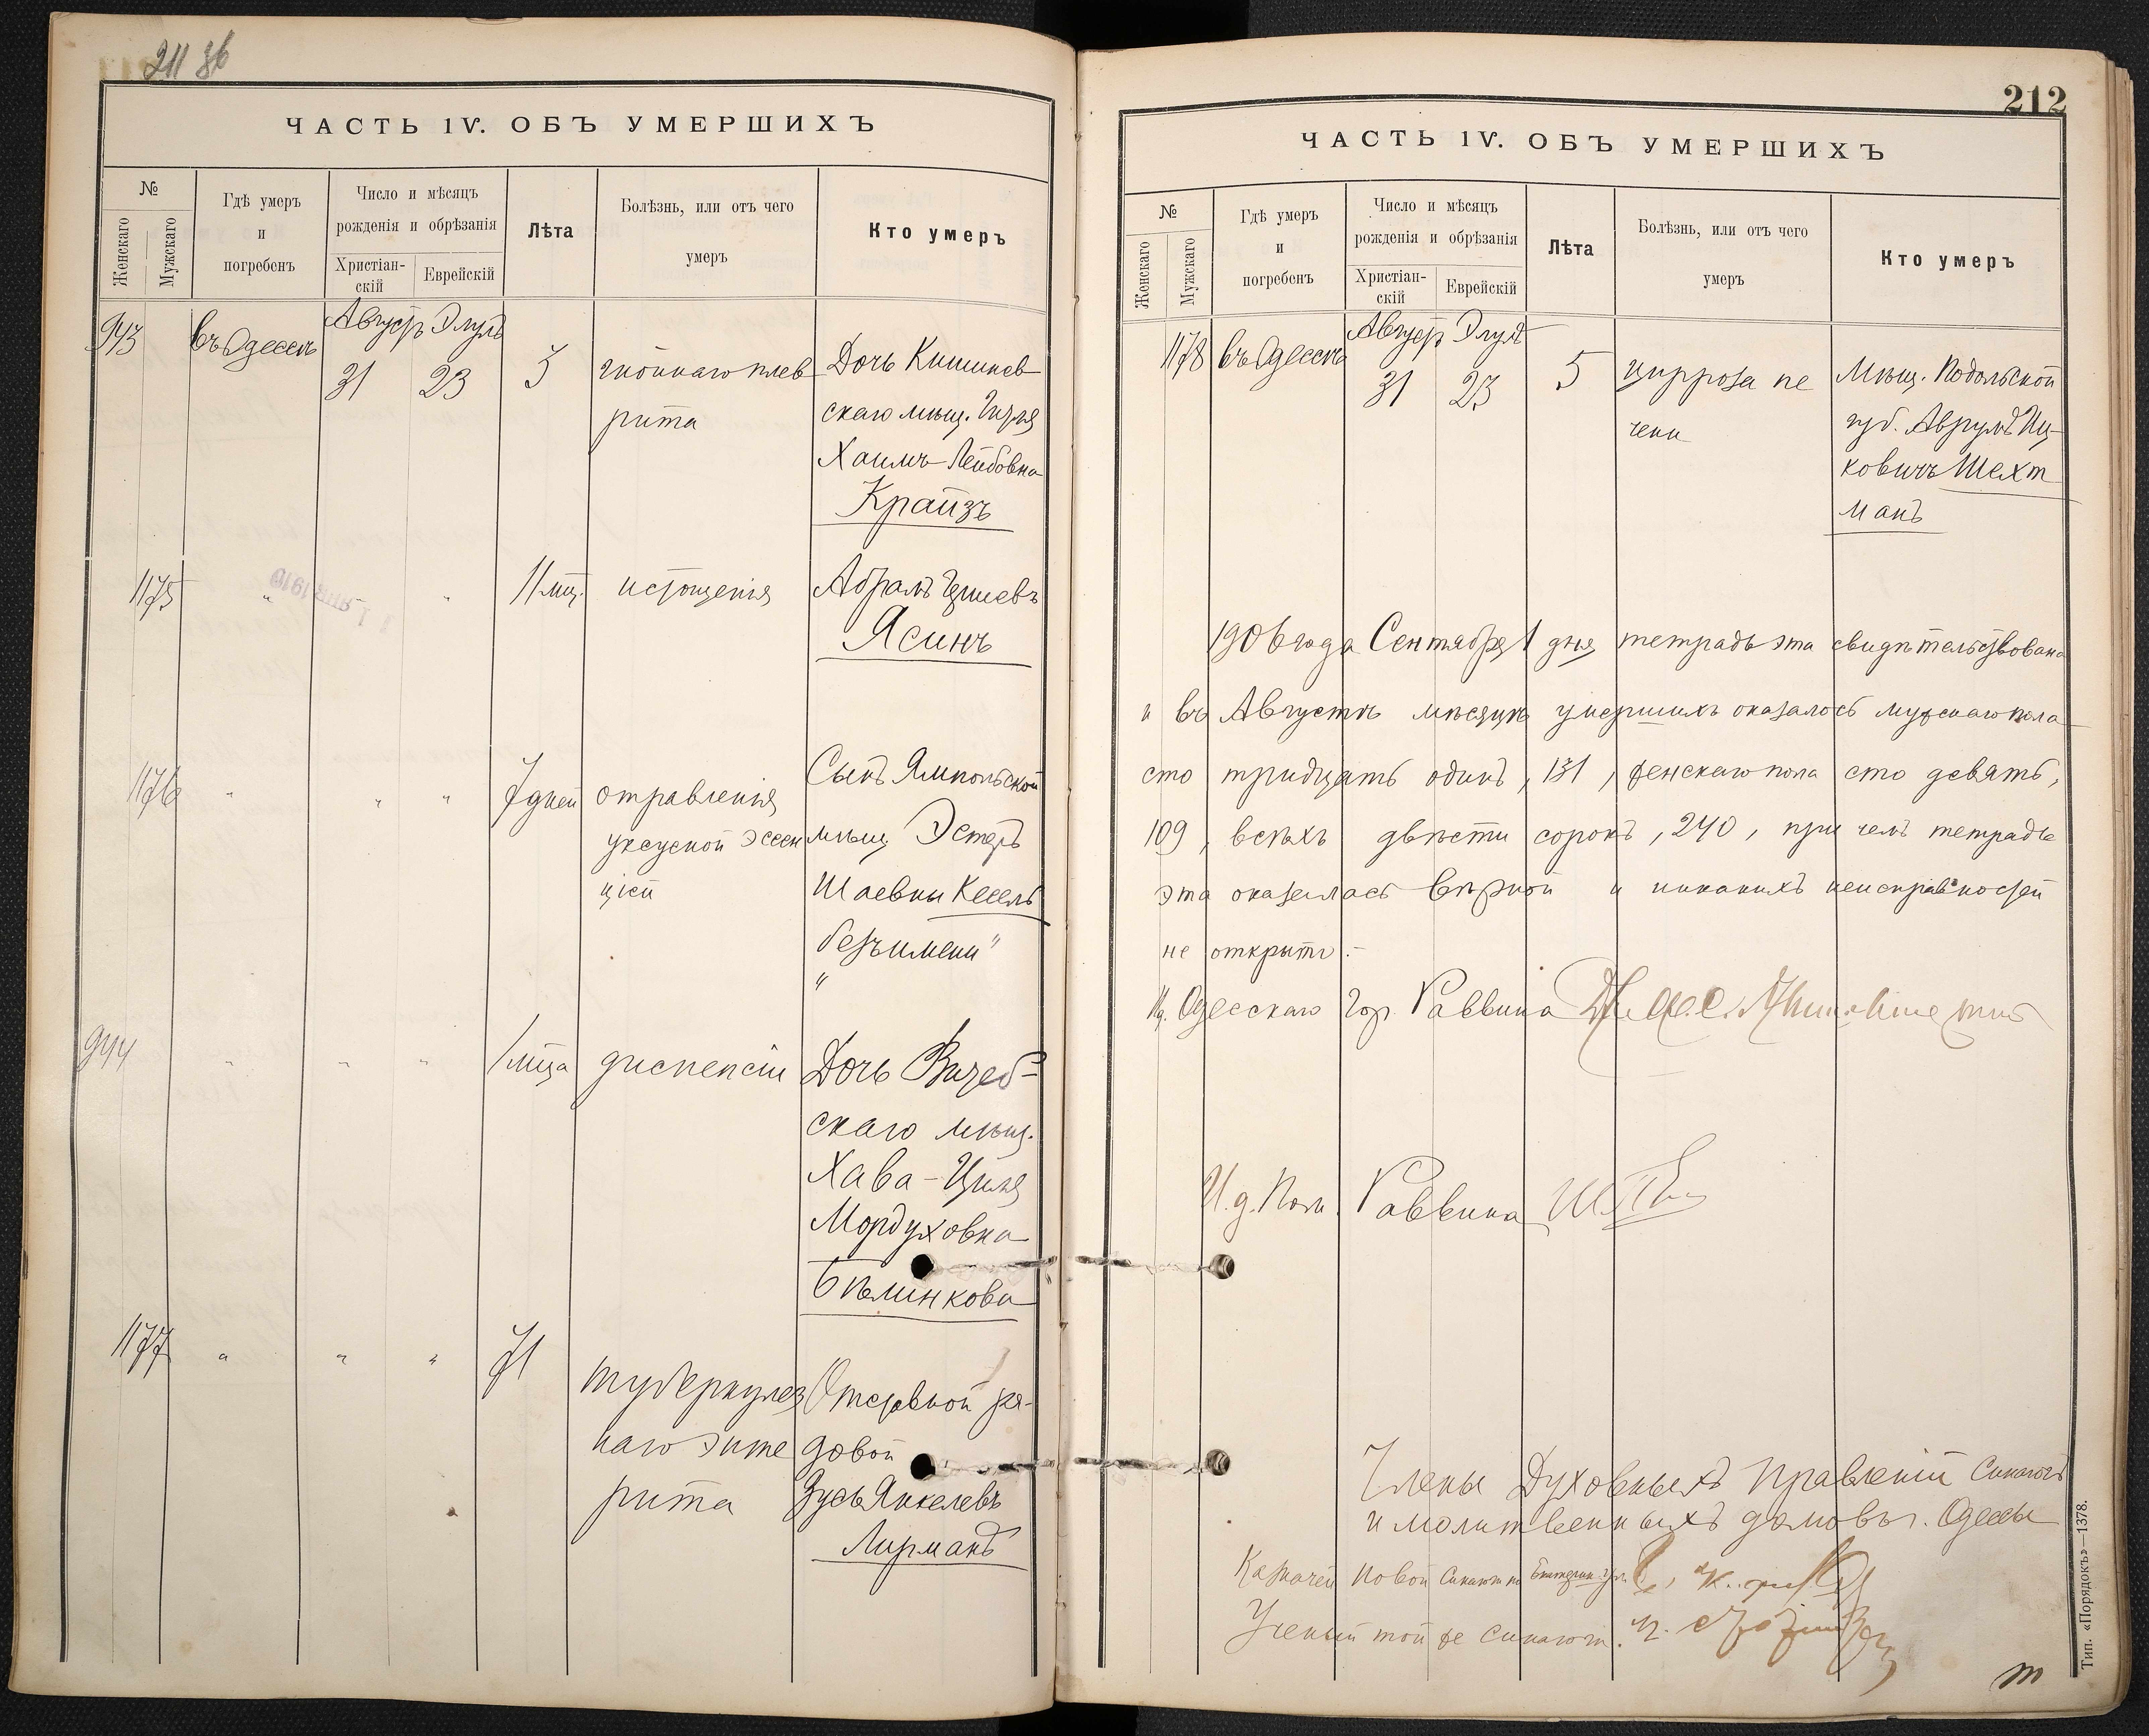 211 зб
ЧАСТЬ IV. ОБЪ УМЕРШИХЪ
№
Женскаго
Мужскаго
Гдѣ умеръ
и
погребенъ
Число и мѣсяцъ
рожденія и обрѣзанія
Христіан-
скій
Еврейскій
Лѣта
Болѣзнь, или отъ чего
умеръ
Кто умеръ
943 въ Одессѣ Августъ Элулъ
31 23 гнойнаго плев Дочь Кишинев
рита скаго мѣщ.
Хаимъ-Лейбовна
Крайзъ
1175 " " " 11 мц. истощенія Абрамъ
Ясинъ
1 ЯНВ 1910
1176 " " " 7 дней отравленія Сынъ Ямпольской
уксусной эссен мѣщ. Эстеръ
ціей Шаевны Кесель
безъ имени"
"
944 " " " 1 мца диспепсіи Дочь Витеб-
скаго мѣщ.
Хава-Циля
Мордуховна
Бѣлинкова
1177 " " " 71 туберкулез Отставной ря-
наго энте довой
рита Зусь Янкелевъ
Лирманъ
212
ЧАСТЬ IV. ОБЪ УМЕРШИХЪ
№
Женскаго
Мужскаго
Гдѣ умеръ
и
погребенъ
Число и мѣсяцъ
рожденія и обрѣзанія
Христіан-
скій
Еврейскій
Лѣта
Болѣзнь, или отъ чего
умеръ
Кто умеръ
1178 въ Одессѣ Августъ Элулъ
31 23 5 цирроза пе Мѣщ. Подольской
чени губ. Аврумъ Иц-
ковичъ Шехт
манъ
1906 года Сентября 1 дня тетрадь эта свидѣтельствована
и въ Августѣ мѣсяцѣ умершихъ оказалось мужскаго пола
сто тридцать одинъ, 131, женскаго пола сто девять,
109, всѣхъ двѣсти сорокъ, 240, при чемъ тетрадь
эта оказалась вѣрной и никакихъ неисправностей
не открыто.-
Одесскаго Гор. Раввина
И. д. Пом. Раввина
Члены Духовныхъ Правленій Синагогъ
и молитвенныхъ домовъ г. Одессы
Казначей Новой Синагоги по
Ученый той же синагоги.
Тип. «Порядокъ»—1378.